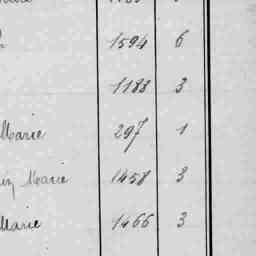 1594 6
1183 3
Marie 297 1
Marie 1458 3
Marie 1466 3